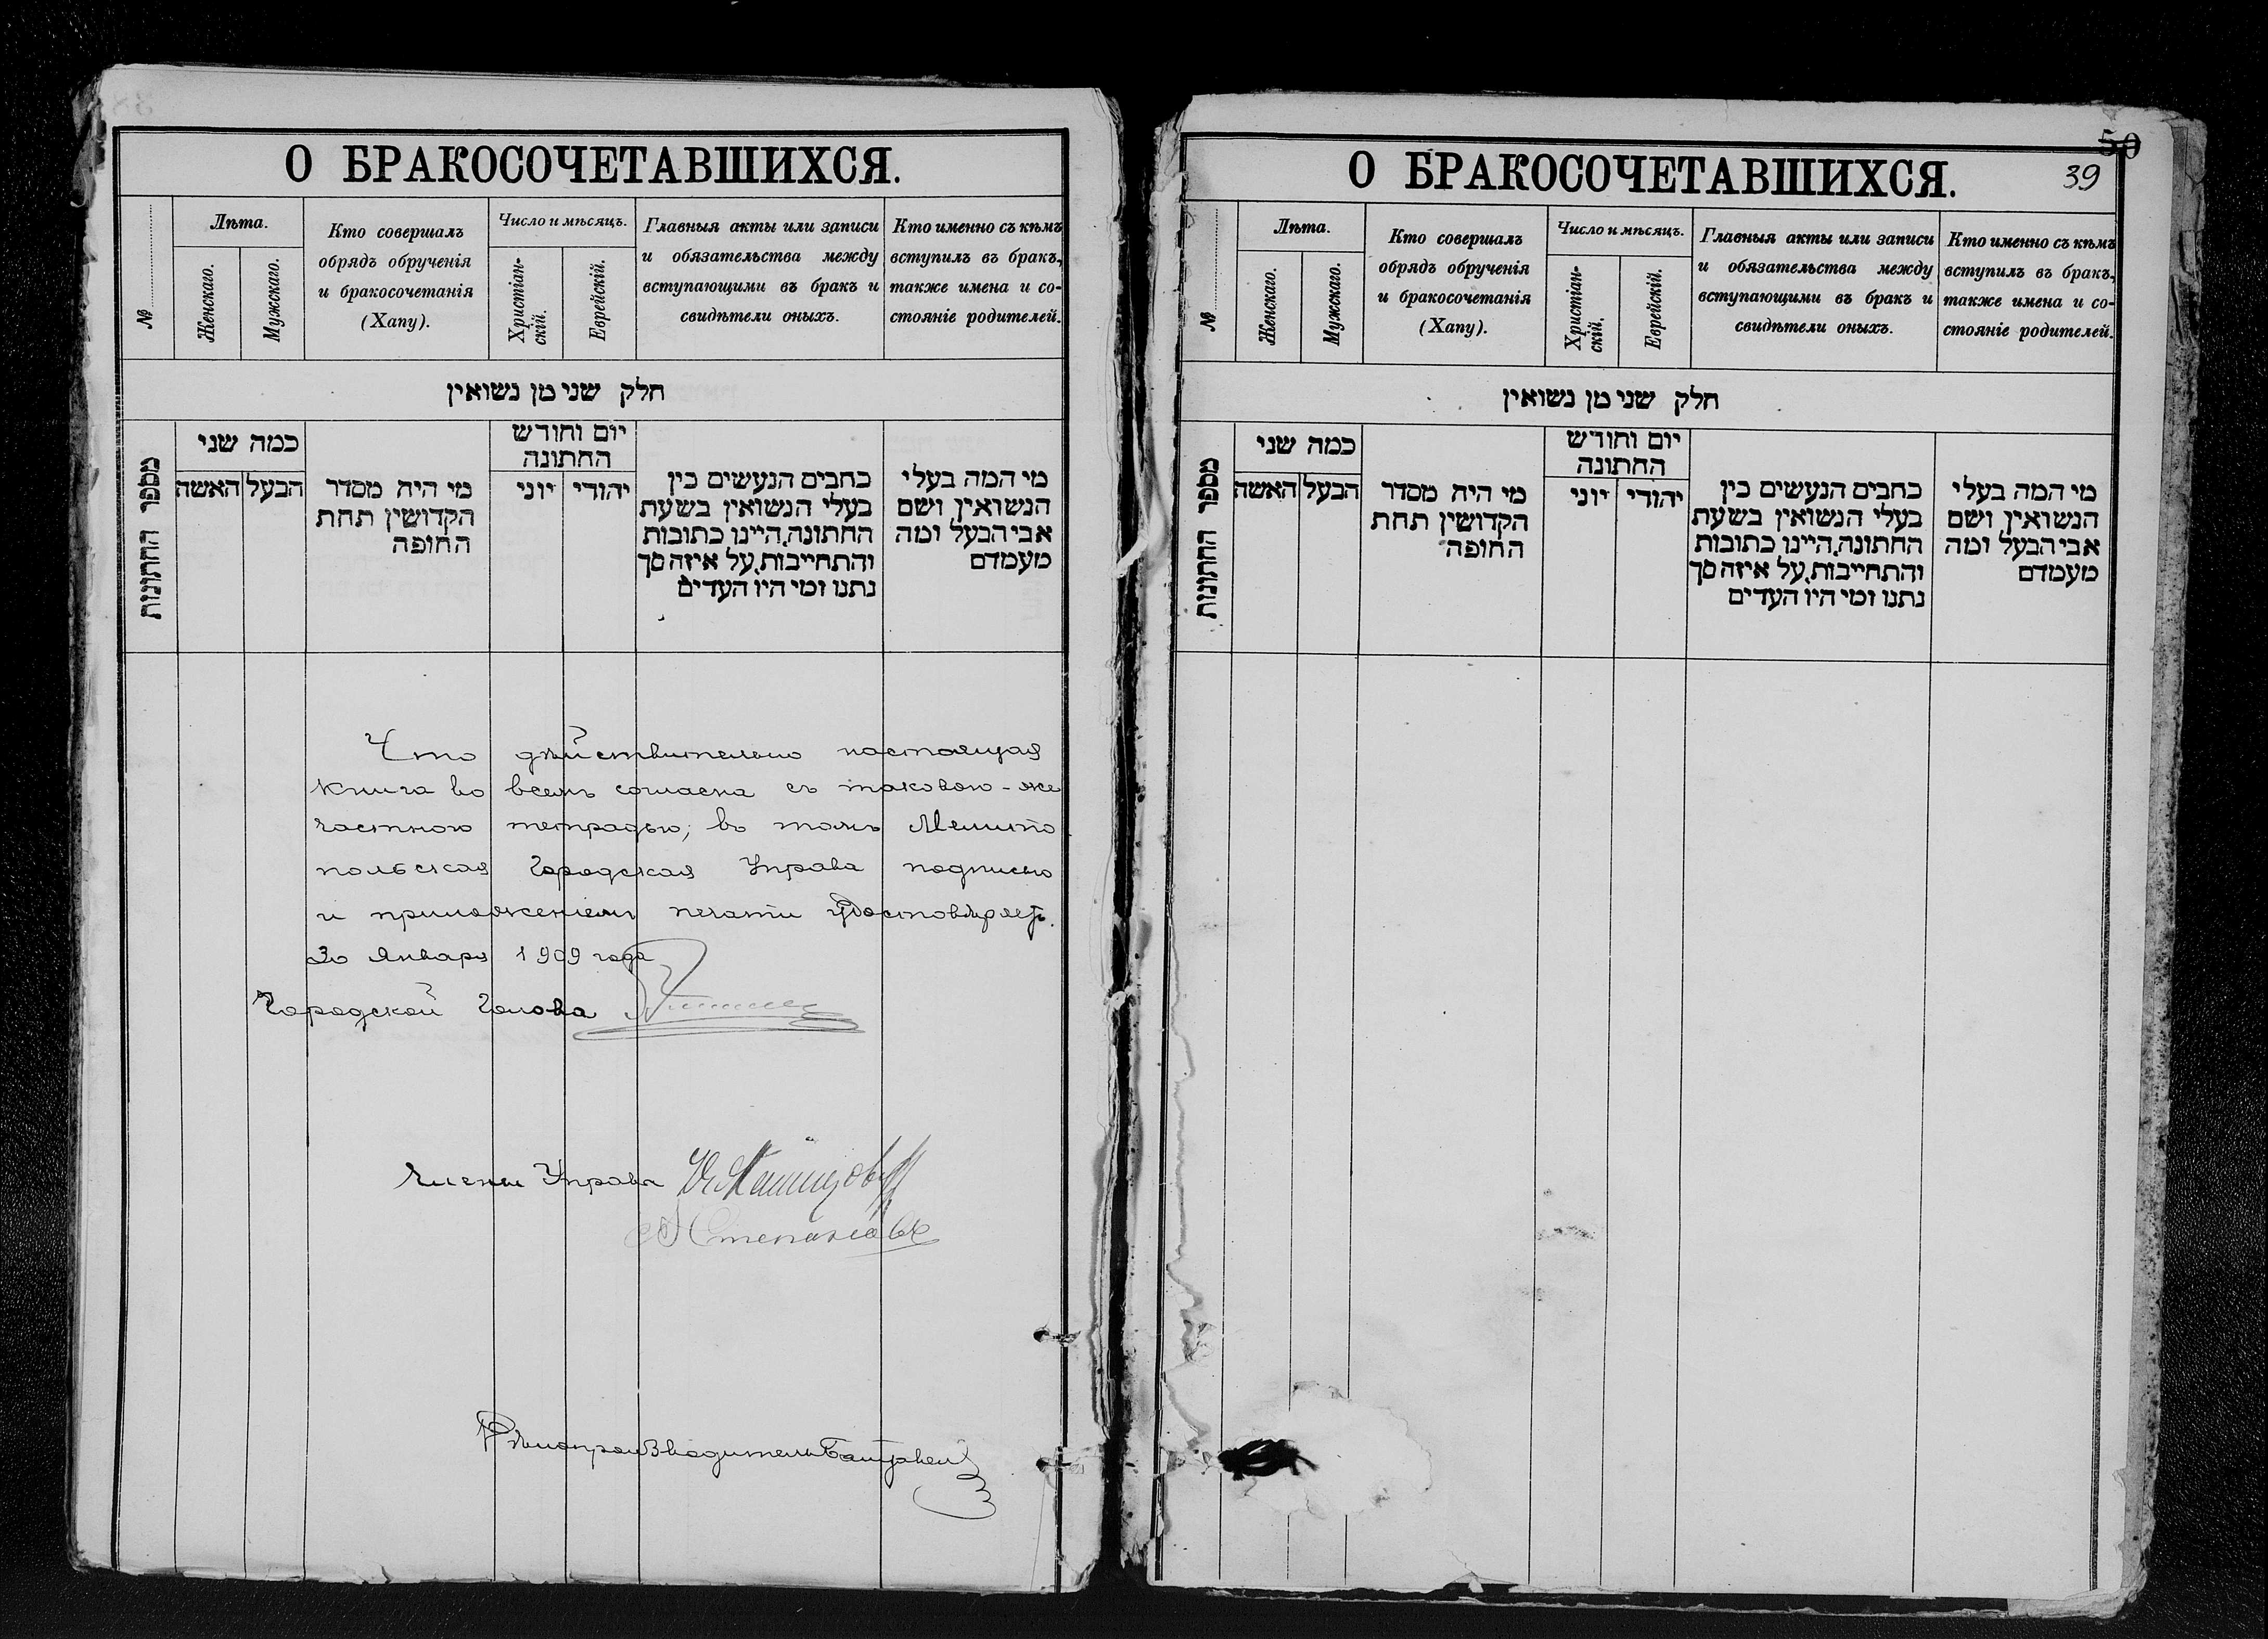 О БРАКОСОЧЕТАВШИХСЯ.
№
Лѣта.
Женскаго.
Мужскаго.
Кто совершалъ
обрядъ обрученія
и бракосочетанія
(Хапу).
Число и мѣсяцъ.
Христіан-
скій.
Еврейскій.
Главныя акты или записи
и обязательства между
вступающими въ бракъ и
свидѣтели оныхъ.
Кто именно съ кѣмъ
вступилъ въ бракъ,
также имена и со-
стояніе родителей.
חלק שני מן נשואין
מספר החתונות
כמה שני
הבעל
האשה
מי היה מסדר
הקדושין תחת
החופה
יום וחודש
החתונה
יהודי
יוני
כתבים הנעשים בין
בעלי הנשואין בשעת
החתונה, היינו כתובות
והתחייבות, על איזה סך
נתנו ומי היו העדים
מי המה בעלי
הנשואין ושם
אבי הבעל ומה
מעמדם
Что дѣйствительно настоящая
книга во всемъ согласна съ таковою-же
частною тетрадью, въ томъ Мелито
польская Городская Управа подписью
и приложеніемъ печати удостовѣряетъ.
30 Января 1909 года
Городской Голова
Члены Управы
Степановъ
Дѣлопроизводитель
О БРАКОСОЧЕТАВШИХСЯ.
50
39
№
Лѣта.
Женскаго.
Мужскаго.
Кто совершалъ
обрядъ обрученія
и бракосочетанія
(Хапу).
Число и мѣсяцъ.
Христіан-
скій.
Еврейскій.
Главныя акты или записи
и обязательства между
вступающими въ бракъ и
свидѣтели оныхъ.
Кто именно съ кѣмъ
вступилъ въ бракъ,
также имена и со-
стояніе родителей.
חלק שני מן נשואין
מספר החתונות
כמה שני
הבעל
האשה
מי היה מסדר
הקדושין תחת
החופה
יום וחודש
החתונה
יהודי
יוני
כתבים הנעשים בין
בעלי הנשואין בשעת
החתונה, היינו כתובות
והתחייבות, על איזה סך
נתנו ומי היו העדים
מי המה בעלי
הנשואין, ושם
אבי הבעל ומה
מעמדם